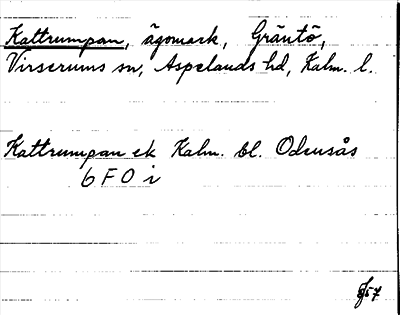 Kattrumpan, ägomark, Gräntö,
Virserums sn, Aspelands hd, Kalm. l.
Kattrumpan ek Kalm. bl. Odensås
6 F 0 i
57